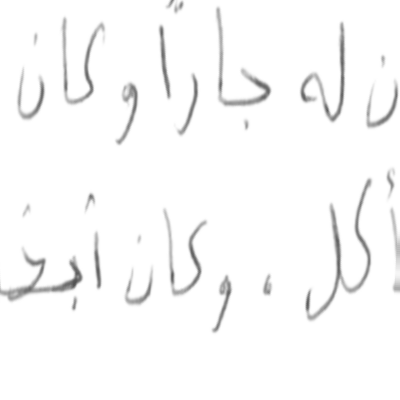 ن له جاراً وكان
أكل ، وكان أبخـ